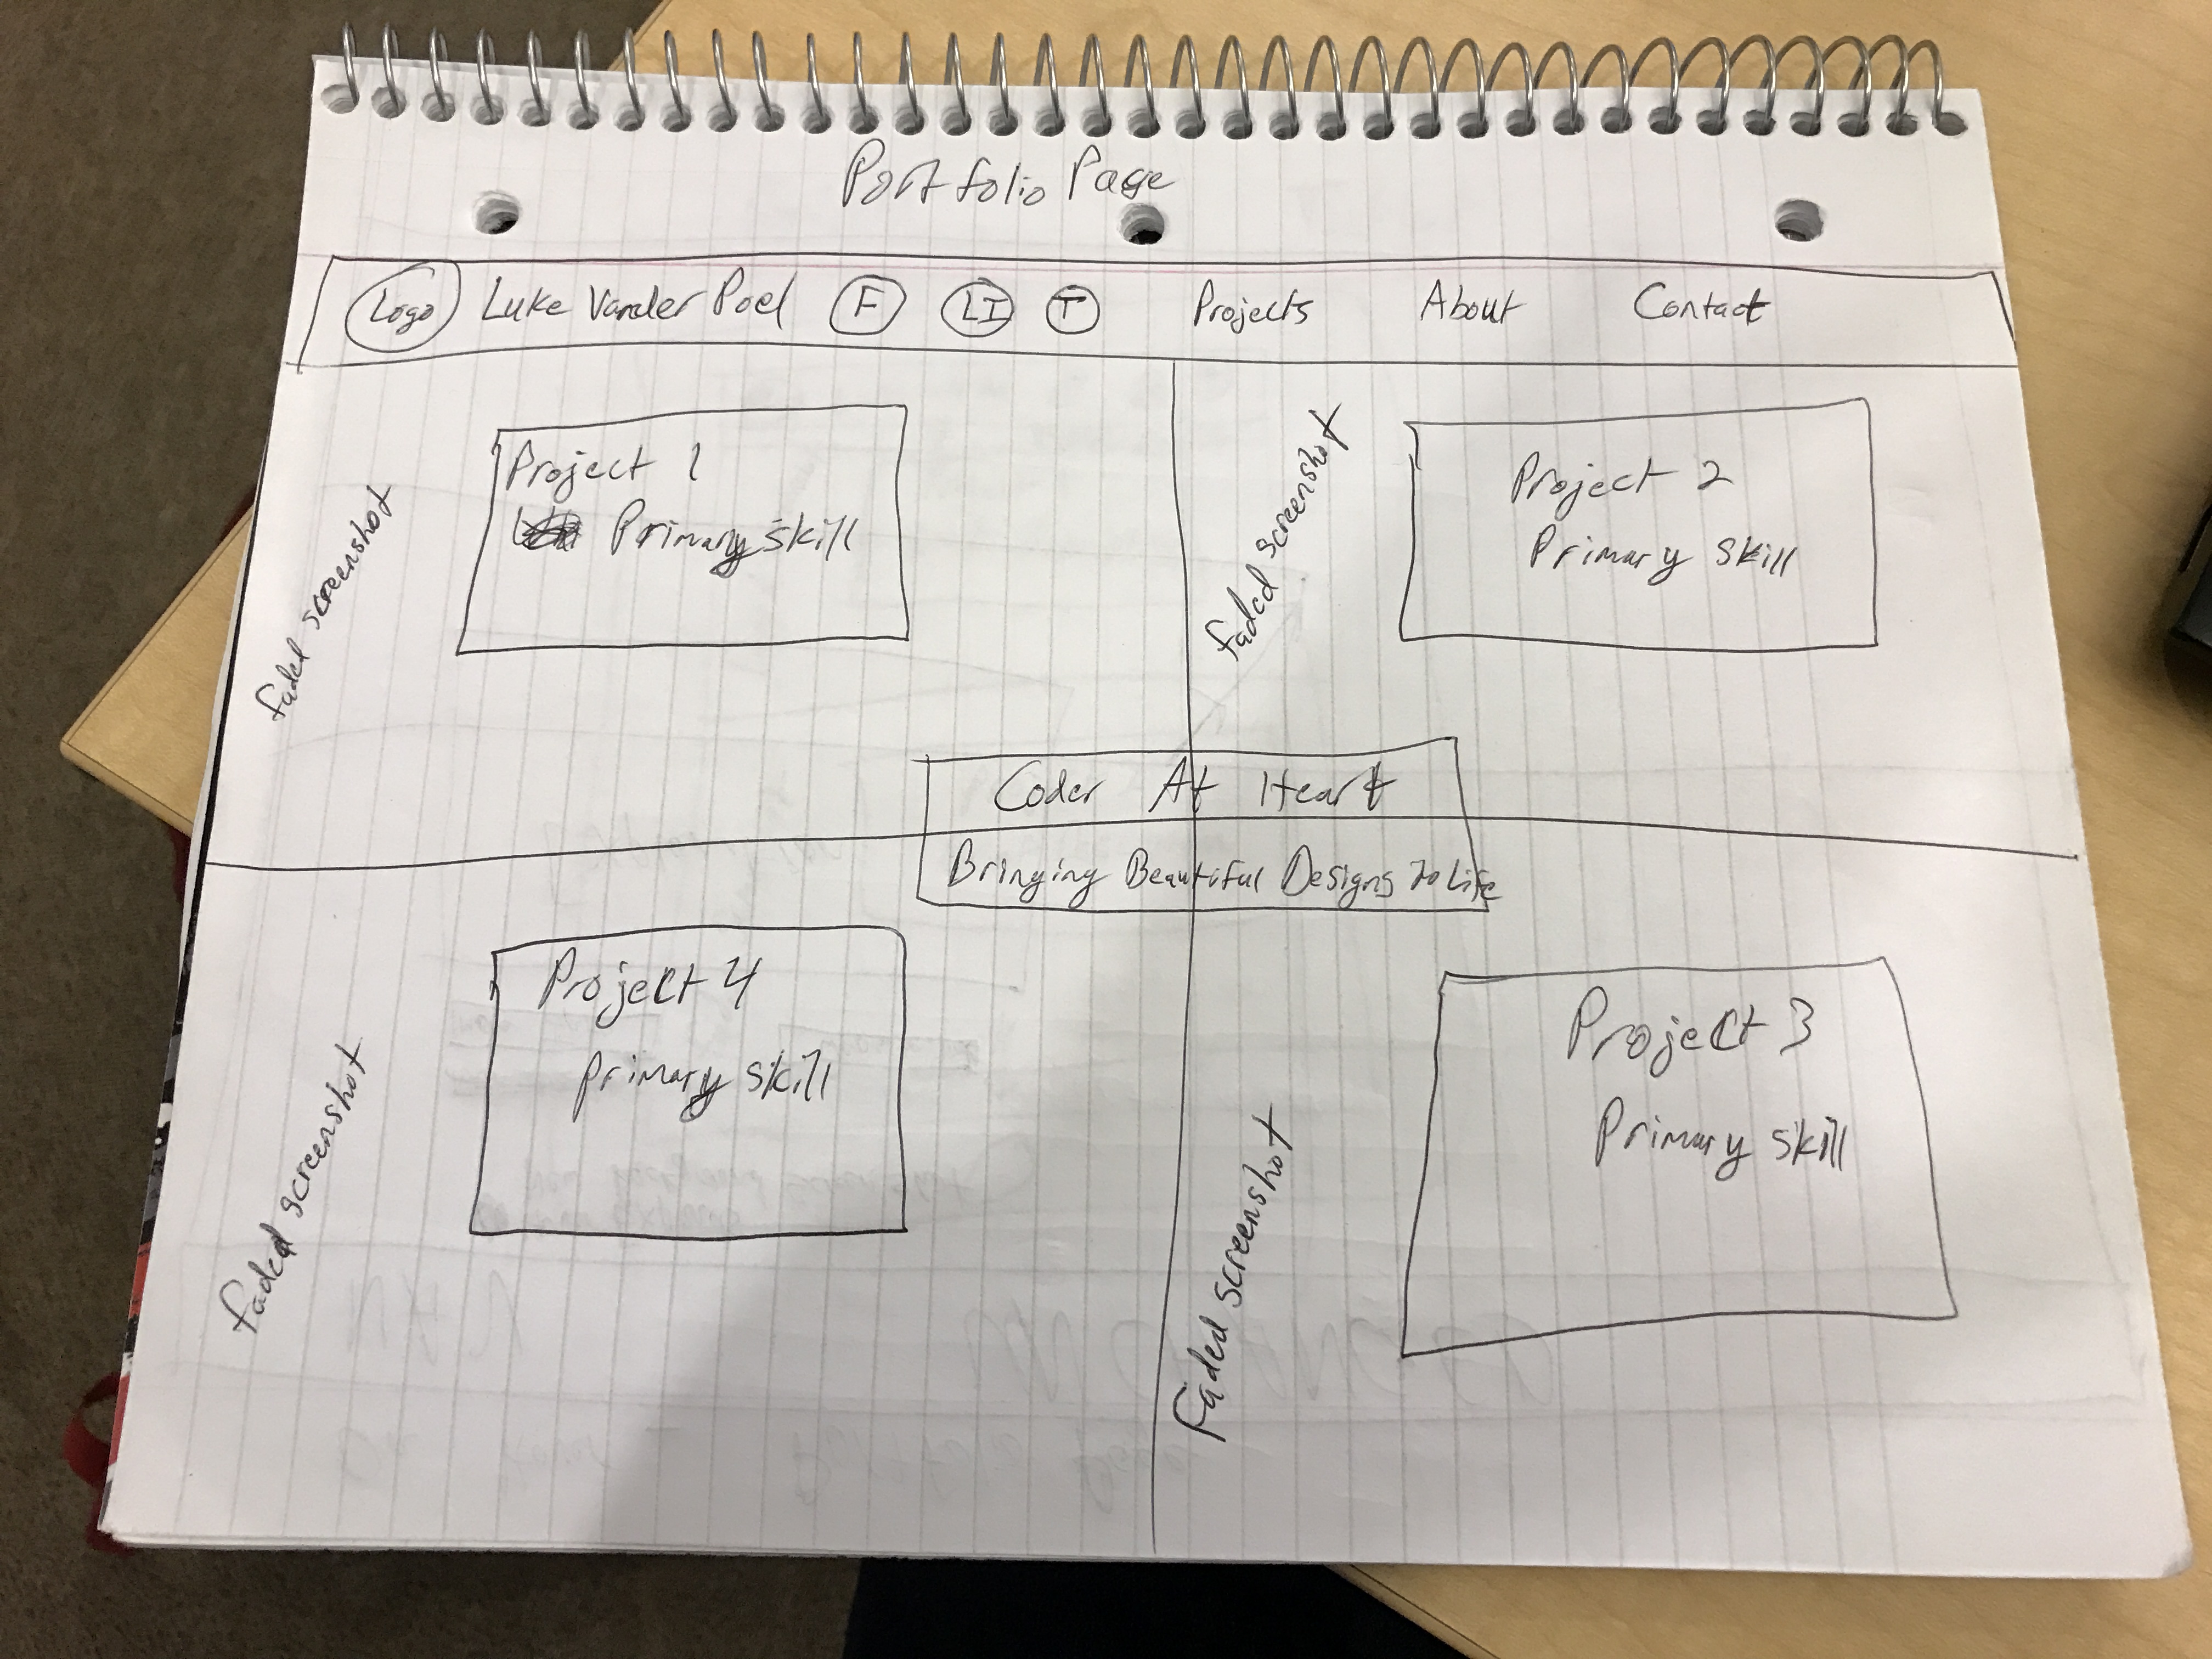 Portfolio Page
Logo Luke Vander Poel F LI T Projects About Contact
faded screenshot
Project 1
Primary Skill
faded screenshot
Project 2
Primary Skill
Coder At Heart
Bringing Beautiful Designs To Life
faded screenshot
Project 4
Primary Skill
faded screenshot
Project 3
Primary Skill